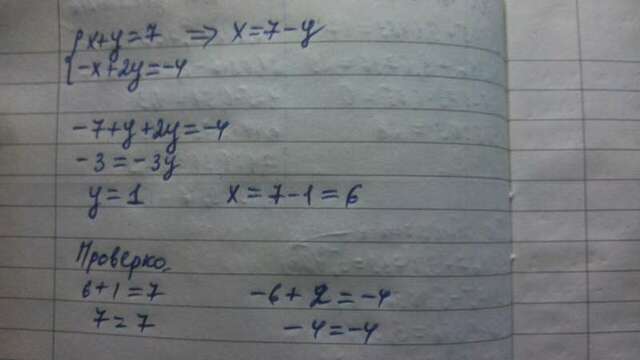 x+y=7 => x=7-y
-x+2y=-4
-7+y+2y=-4
-3=-3y
y=1 x=7-1=6
Проверка.
6+1=7 -6+2=-4
7=7 -4=-4